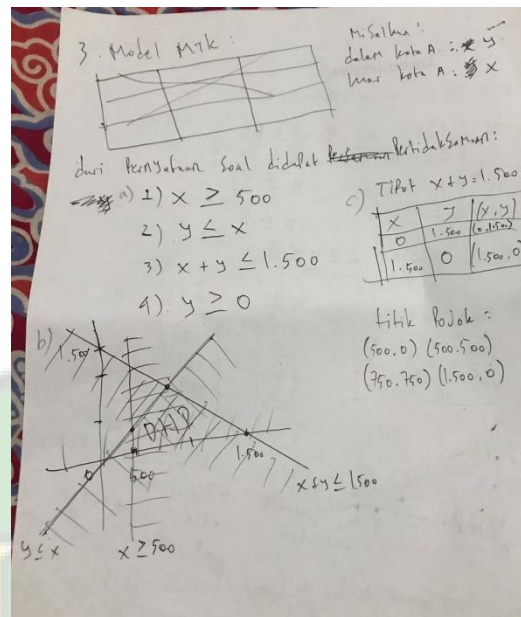 3. Model MTK :
Misalkan :
dalam kota A : y
luar kota A : x
dari Pernyataan Soal didapat Pertidaksamaan:
a) 1) x ≥ 500
2) y ≤ x
3) x + y ≤ 1.500
4) y ≥ 0
c) TiPot x + y = 1.500
x y (x,y)
0 1.500 (0,1.500)
1.500 0 (1.500,0)
titik Pojok :
(500,0) (500.500)
(750.750) (1.500,0)
b)
1.500
DHP
0 500 1.500
x + y ≤ 1500
y ≤ x x ≥ 500